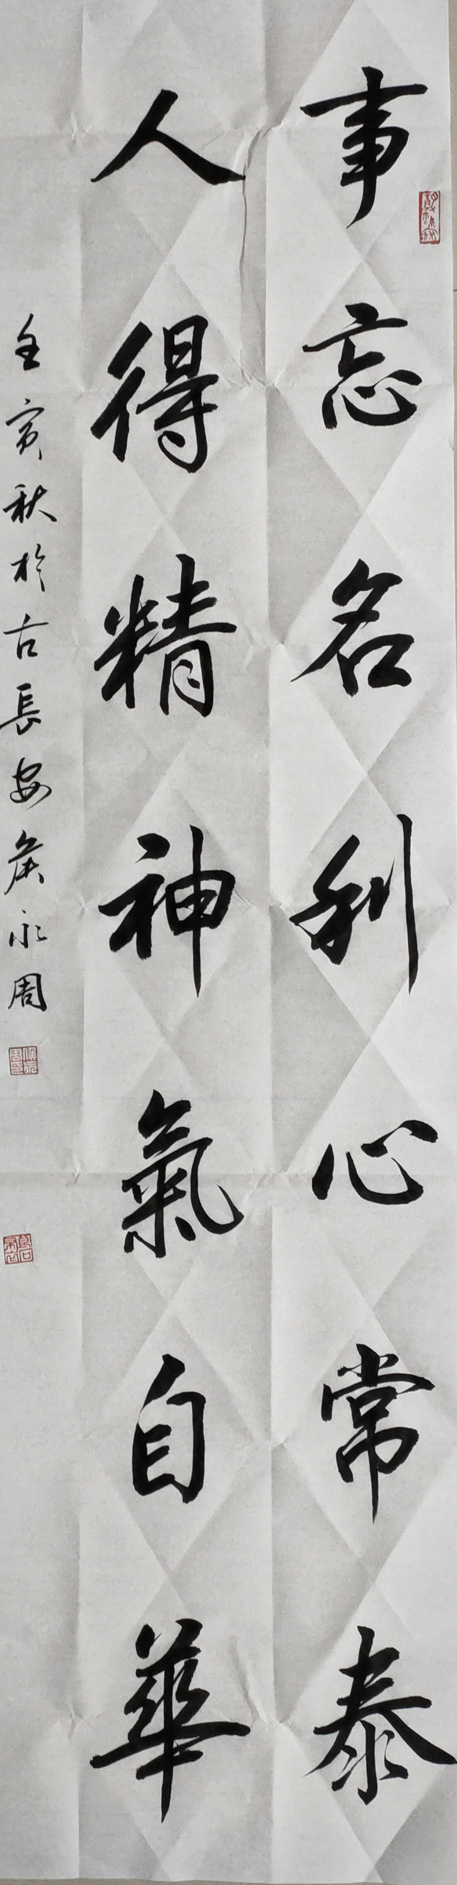 事忘名利心常泰
人得精神氣自華
壬寅秋於古長安侯永周